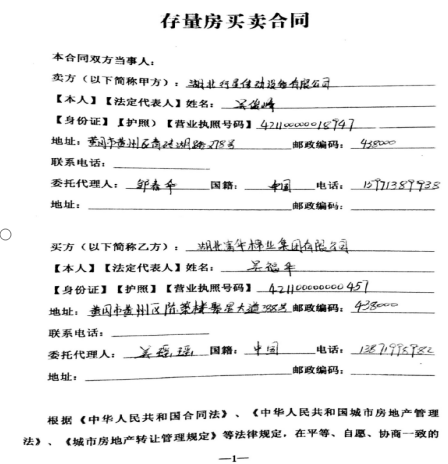 存量房买卖合同
本合同双方当事人:
卖方(以下简称甲方):湖北行星传动设备有限公司
【本人】【法定代表人】姓名:
【身份证】【护照】【营业执照号码】421100000018947
地址:黄冈市黄州区 湖路278号 邮政编码:438000
联系电话:
委托代理人: 国籍:中国 电话:15971389938
地址: 邮政编码:
买方(以下简称乙方):湖北富华梯业集团有限公司
【本人】【法定代表人】姓名:
【身份证】【护照】【营业执照号码】4211000000000457
地址:黄冈市黄州区 大道388号 邮政编码:438000
联系电话:
委托代理人: 国籍:中国 电话:13871998982
地址: 邮政编码:
根据《中华人民共和国合同法》、《中华人民共和国城市房地产管理
法》、《城市房地产转让管理规定》等法律规定,在平等、自愿、协商一致的
—1—